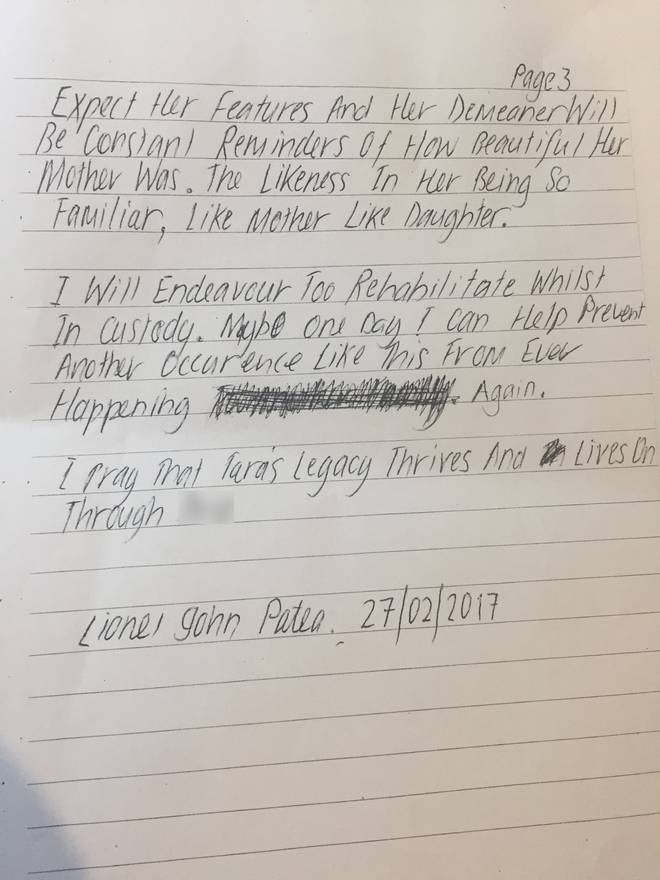 Page 3
Expect Her Features And Her Demeaner Will
Be Constant Reminders Of How Beautiful Her
Mother Was. The Likeness In Her Being So
Familiar, Like Mother Like Daughter.
I Will Endeavour Too Rehabilitate Whilst
In Custody. Maybe One Day I Can Help Prevent
Another Occurence Like This From Ever
Happening Again.
I Pray That Tara's Legacy Thrives And Lives On
Through
Lionel John Patea. 27/02/2017